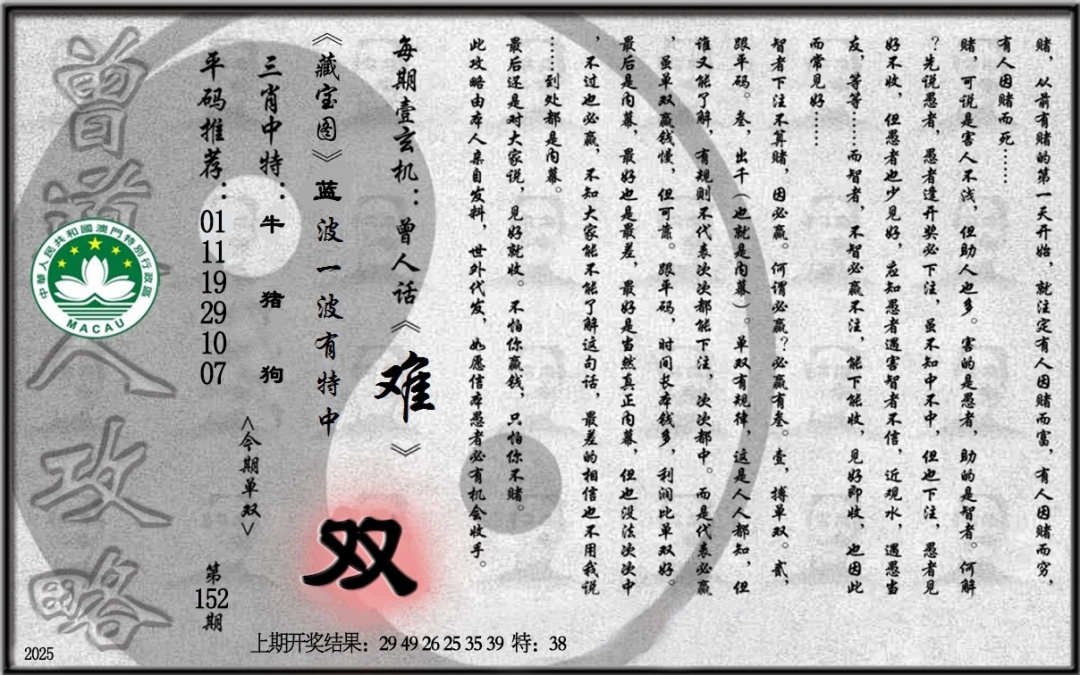 赌，从前有赌的第一天开始，就注定有人因赌而富，有人因赌而穷，
有人因赌而死……
赌，可说是害人不浅，但助人也多。害的是愚者，助的是智者。何解
？先说愚者，愚者逢开奖必下注，虽不知中不中，但也下注，愚者见
好不收，但愚者也少见好，应知愚者遇害智者不信，近观水，遇愚当
友，等等……而智者，不智必赢不注，能下能收，见好即收，也因此
而常见好……
智者下注不算赌，因必赢。何谓必赢？必赢有叁。壹，搏单双。贰，
跟平码。叁，出千（也就是内幕）。单双有规律，这是人人都知，但
谁又能了解，有规则不代表次次都能下注，次次都中。而是代表必赢
，虽单双赢钱慢，但可靠。跟平码，时间长本钱多，利润比单双好。
最后是内幕，最好也是最差，最好是当然真正内幕，但也没法次次中
，不过也必赢，不知大家能不能了解这句话，最差的相信也不用我说
……到处都是内幕。
最后还是对大家说，见好就收。不怕你赢钱，只怕你不赌。
此攻略由本人亲自发料，世外代发，如愿信本愚者必有机会收手。
每期壹玄机：曾人话《难》
《藏宝图》蓝波一波有特中
双
三肖中特：牛 猪 狗
<今期单双>
平码推荐：01 11 19 29 10 07
第152期
曾道人攻略
中華人民共和國澳門特別行政區
MACAU
上期开奖结果：29 49 26 25 35 39 特：38
2025